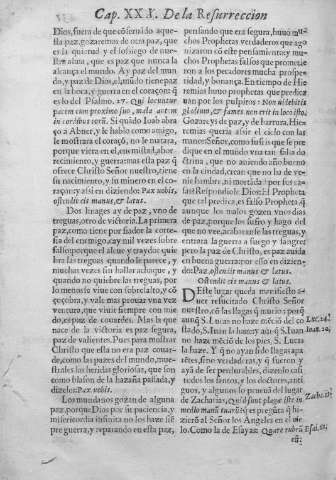 Cap. XXX. De la Resurreccion
Dios, fuera de que cõseruado aque
lla paz, gozaremos de otra paz, que
es la quietud y el sosiego de nue-
stra alma, que es paz que nunca la
alcança el mundo. Ay paz del mun
do, y paz de Dios, al mũdo tiene paz
en la boca, y guerra en el coraçon: q̃
es lo del Psalmo. 27. Qui loquuntur
pacem cum proximo suo, mala autem
in cordibus eorũ. Si quãdo Ioab abra
ço a Abner, y le hablo como amigo,
le mostrara el coraçõ, no le matara,
porque viera en el, enemistad, abor
recimiento, y guerra: mas esta paz q̃
ofrece Christo Señor nuestro, tiene
su nacimiento, y su minero en el co-
raçon: y assi en diziendo: Pax vobis,
ostendit eis manus, & latus.
Dos linages ay de paz, vno de
treguas, otro de victoria. La primera
paz, como tiene por fiador la corte-
sia del enemigo, ay mil vezes sobre
falsos
bra las treguas quando le parece, y
muchas vezes sin hallar achaque, y
quando no quiebre las treguas, por
lo menos viue con sobresalto, y cõ
çoçobra, y vale mas prouar vna vez
ventura, que viuir siempre con mie
do, es paz de couardes. Mas la que
nace de la victoria es paz segura,
paz de valientes. Pues para mostrar
Christo que esta no era paz couar-
de, como las pazes del mundo, mue-
strales las heridas gloriosas, que son
como blason de la hazaña passada, y
dizeles: Pax vobis.
Los mundanos gozan de alguna
paz, porque Dios por su paciencia, y
misericordia infinita no los haze siẽ
pre guerra, y reparando en esta paz,
pensando que era segura, huuo mu-
chos Prophetas verdaderos que ago
nizaron cõ este pensamiento, y mu-
chos Prophetas falsos que prometie
ron a los pecadores mucha prospe-
ridad, y bonança. En tiempo de Hie
remias huuo prophetas que predica
uan por los pulpitos: Non videbitis
gladium, & fames non erit in loco isto,
Gozareys de paz, y de hartura, Hie
remias queria assir el cielo con las
manos: Señor, como sufris que se pre
dique en el mundo vna tan falsa do
ctrina, que no auiendo año bueno
en la ciudad, crean que no ha de ve-
nir
Respondiole Dios: El Propheta
que tal predica, es falso Propheta: q̃
aunque los malos gozen vnos dias
de paz, porque los sufro, y luego del
que no vee, acabaranse las treguas, y
entrara la guerra a fuego y sangre:
pero la paz de Christo, es paz auida
en buena guerra: por esso en dizien-
do: Pax, ostendit manus & latus.
Ostendit eis manus & latus.
DEste lugar queda manifiesto a-
uer resucitado Christo Señor
nuestro, cõ las llagas q̃ murio: porq̃
aunq̃ S. Lucas no haze mẽciõ del co
stado, S. Iuan la haze: y aunq̃ S. Iuan
no haze mẽciõ de los pies, S. Lucas
la haze. Y q̃ no ayan sido llagas apa-
rẽtes, sino verdaderas, y q̃ fueron y
ayã de ser perdurables, dizẽlo casi
todos los santos, y los doctores, anti-
guos, y algunos lo prueuã del lugar
de Zacharias, Quid sunt plagæ istæ in
medio manuũ tuarũ? es pregũta q̃ hi-
zierõ al Señor los Angeles en el cie
lo. Como la de Esayas: Quare rubrũ
est
Luc. 24.
Ioan. 20.
Zach. 13.
Esai. 63.